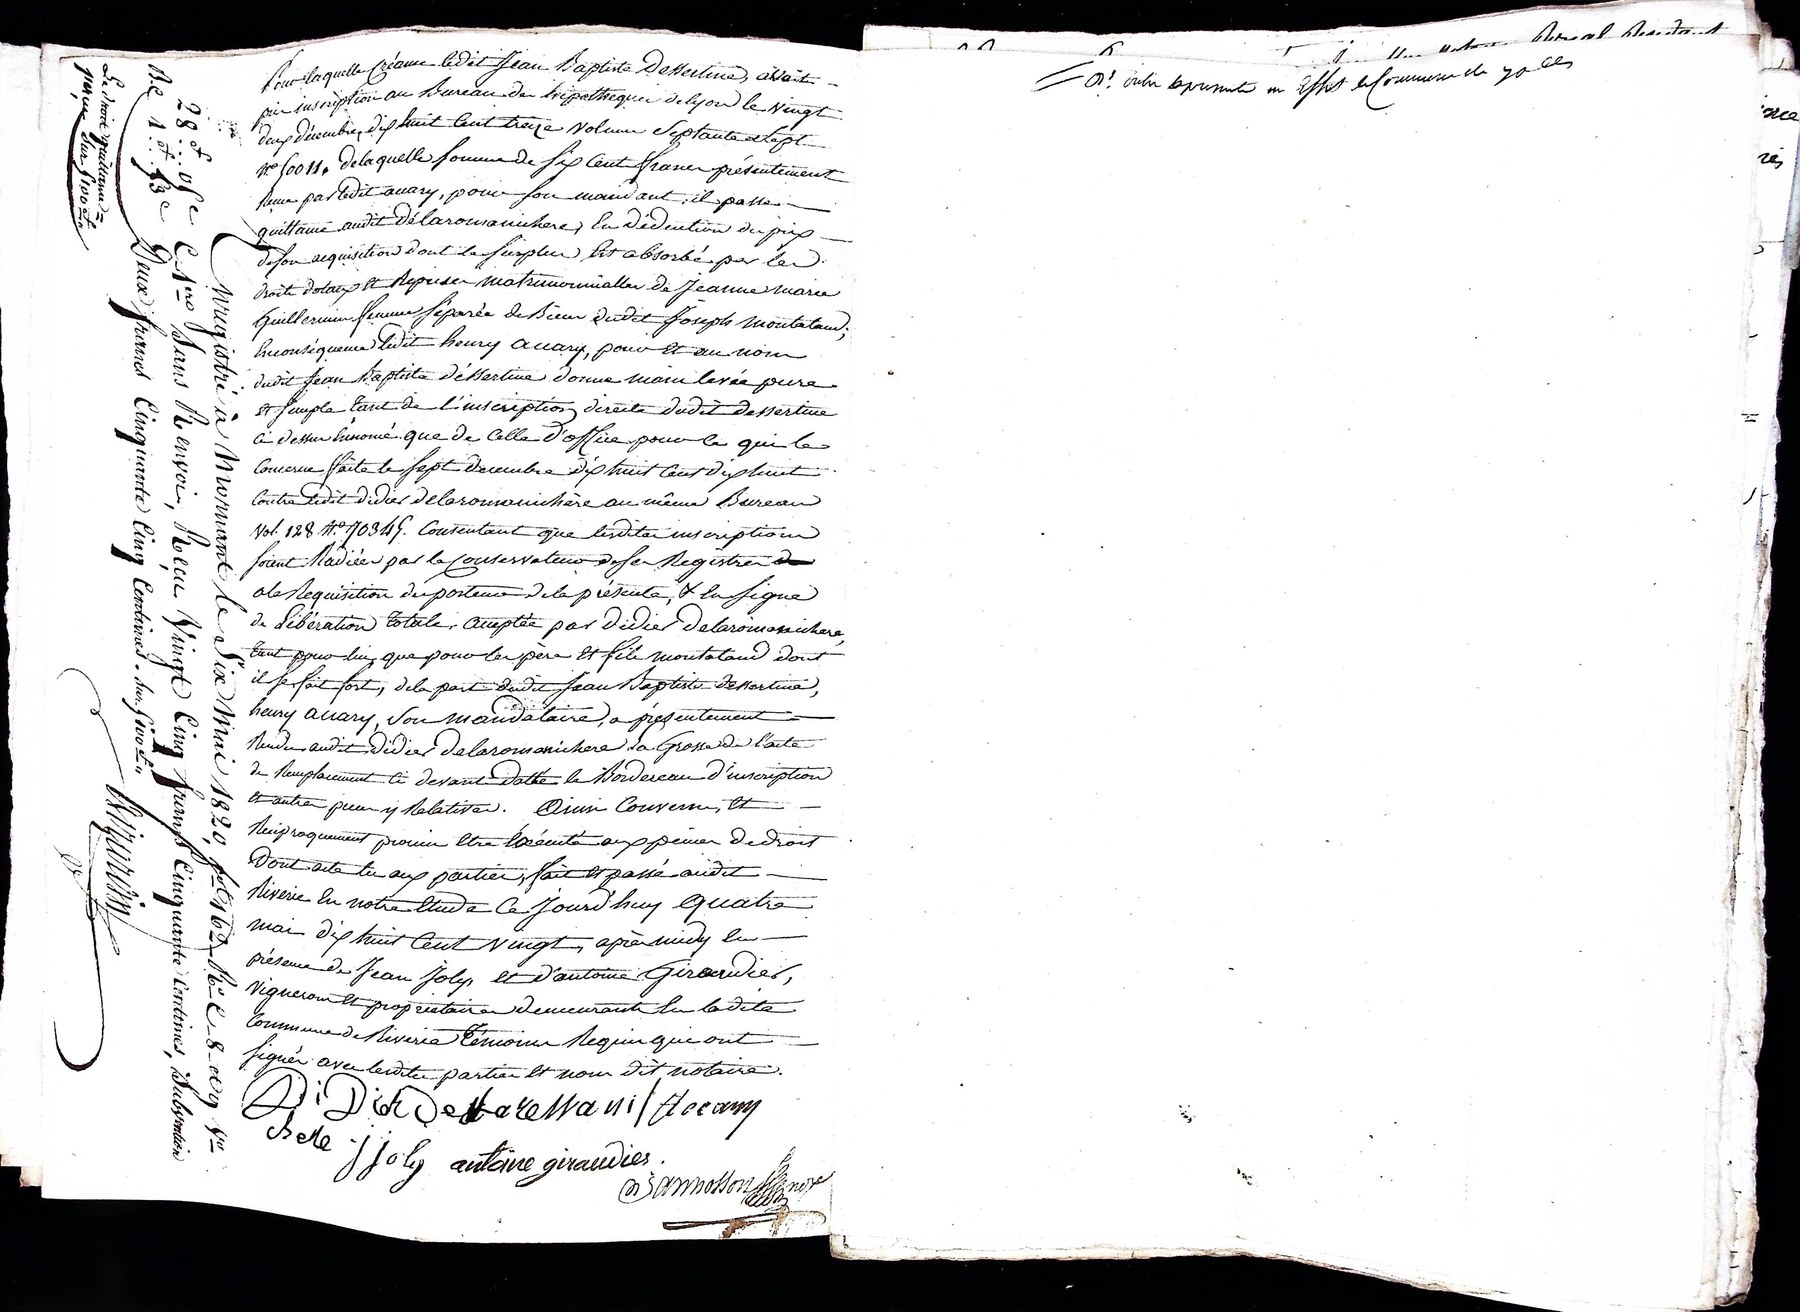 Pour laquelle Créance ledit Jean Baptiste Dessertine, avait
pris inscription au Bureau des hipotheques de lyon le vingt
deux décembre, dix huit Cent treize volume Septante et Sept
No. 50011. de laquelle somme de Six Cent francs présentement
Reçue par ledit avary, pour son mandant, il passe
quittance audit Délaromanichere, En Déduction du prix
de son acquisition dont le surplus Est absorbé par les
droits dotaux et Reprises matrimonialles de Jeanne marie
Guillermin femme Séparée de Biens dudit Joseph montaland;
En conséquence ledit henry avary, pour et au nom
dudit Jean Baptiste déssertine donne main levée pure
et simple tant de l'inscription directe dudit dessertine
ci dessus Enoncé que de Celle d'office pour ce qui le
Concerne faite le Sept decembre dix huit Cent dix huit
Contre ledit didier delaromanichère au même Bureau
Vol. 128 No. 70345. Consentant que lesdites inscriptions
soient Radiées par le Conservateur de ses Registres
a la Requisition du porteur de la présente, & En signe
de Libération totale, acceptée par didier Delaromanichere,
tant pour lui, que pour les père et fils montaland dont
il se fait fort, de la part dudit Jean Baptiste dessertine,
henry avary, Son mandataire, a présentement
Rendu audit didier Delaromanichere la Grosse de l'acte
de Remplacement ci devant datté le Bordereau d'inscription
et autres pieces y Relatives. Ainsi Convenu, et
Reciproquement promis Etre Exécuté aux peines de droit
Dont acte lu aux parties, fait et passé audit
Riverie En notre Etude Ce Jourd'huy Quatre
mai dix huit Cent vingt, après midy En
présence de Jean Joly, et d'antoine Giraudier,
Vignerons et propriétaires demeurants En ladite
Commune de Riverie témoins Requis qui ont
signés avec lesdites parties et nous dit notaire.
DiDiER De LareMani / H avary
chere
j joly antoine giraudier.
Enregistré à Mornant le Six Mai 1820, fol. 162 Ro. C. 8 et 9 Vo.
28 f. 05 c Sans Renvoi, Reçu Vingt Cinq francs Cinquante Centimes, Subvention
Deux francs Cinquante Cinq Centimes.